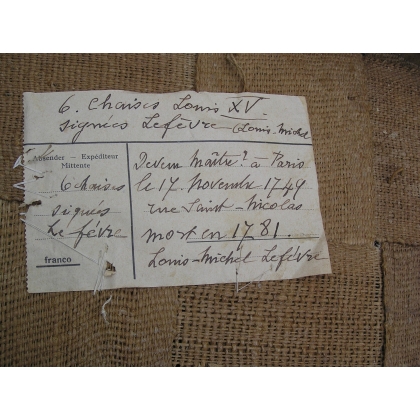 6. Chaises Louis XV
signées Lefèvre (Louis-Michel
Absender — Expéditeur
Mittente
6 Chaises
signés
Lefévre
franco
Devenu Maître? à Paris
le 17. Novembre 1749
rue Saint-Nicolas
mort en 1781.
Louis-Michel Lefévre